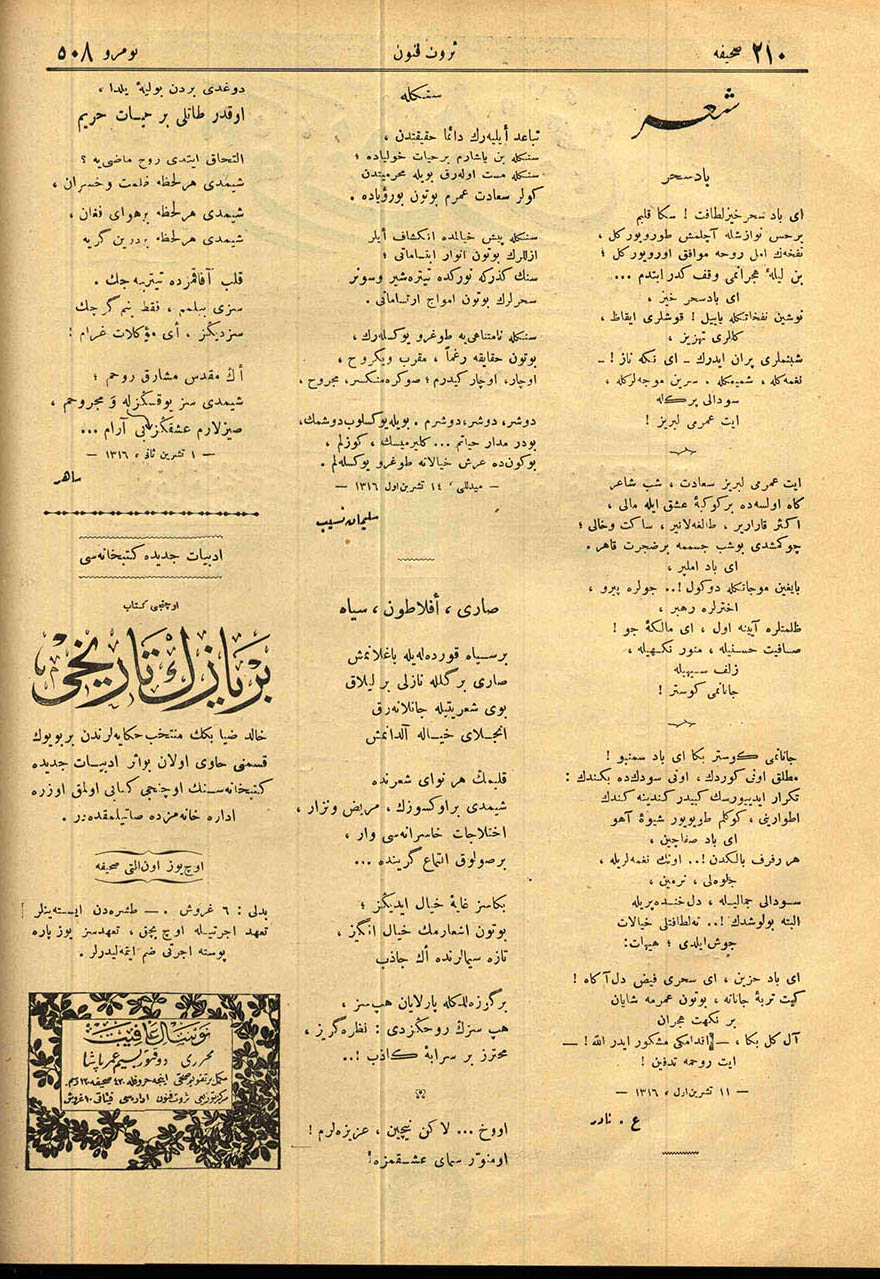 صحيفه ٢١٠
ثروت فنون
نومرو ٥٠٨
شعر
بادسحر
ای باد سحرخيز لطافت ! سكا قلبم
برحس نوازشله آچلمش طورويور كل ،
نفخه‌ك امل روحه موافق اورويور كل ؛
بن ليلهٔ هجرانمی وقف كدر ايتدم ...
ای بادسحر خيز ،
نوشين نفحاتكله ياييل ! قوشلری ايقاظ ،
كللری تهزيز ،
شبنملری پران ايدرك ـ ای نكه ناز ! ـ
نغمه‌كله ، شميمكله ، سرين موجه‌لركله ،
سودالی بركله
ايت عمرمی لبريز !
ايت عمرمی لبريز سعادت ، شب شاعر
كاه اولسه‌ده بركوكبهٔ عشق ايله مالی ،
اكثر قارارير ، طالغه‌لانير ، ساكت وخالی ؛
چوكمشدی بوشب جسممه برضجرت قاهر .
ای باد املپر ،
بايغين موجاتكله دوكول !.. جولره پيرو ،
اخترلره رهبر ،
ظلمتلره آيينه اول ، ای مالكهٔ جو !
صافيت حسنيله ، منور نكهيله ،
زلف سيهيله
جانانمی كوستر !
جانانمی كوستر بكا ای باد سمنبو !
مطلق اونی كوردك ، اونی سودك‌ده بكندك :
تكرار ايدييورسك كبيدر كندينه كندك
اطوارينی ، كوكلم طويويور شيوهٔ آهو
ای باد صفاچين ،
هر رفرف بالكدن !.. اونك نغمه‌لريله ،
جلوه‌لی ، نرمين ،
سودالی جماليله ، دل‌خنده‌پريله
البته بولوشدك !.. نه‌لطافتلی خيالات
جوش‌ايلدی ؛ هيهات :
ای باد حزين ، ای سحری فيض دل‌آكاه !
كيت تربهٔ جانانه ، بوتون عمرمه شايان
بر نكهت هجران
آل كل بكا ، — اقدامكی مشكور ايدر الله ! —
ايت روحمه تدفين !
— ١١ تشرين اول ، ١٣١٦ —
ع . نادر
سنكله
تباعد أيليه‌رك دائما حقيقتدن ،
سنكله بن ياشارم برحيات خولياده ؛
سنكله مست اوله‌رق بويله محرميتدن
كولر سعادت عمرم بوتون بورؤياده .
سنكله پيش خيالمده انكشاف أيلر
ازللرك بوتون انوار ابتساماتی ؛
سنك كذركه نوركده تيتره‌شير وسونر
سحرلرك بوتون امواج ارتساماتی .
سنكله نامتناهی‌يه طوغرو يوكسله‌رك ،
بوتون حقايقه رغماً ، مقرب ويكروح ،
اوچار، اوچار كيدرم ؛ صوكره‌منكسر، مجروح ،
دوشر، دوشر، دوشرم . بويله‌يوكسلوب‌دوشمك،
بودر مدار حياتم ... كليرميسك ، كوزلم ،
بوكون‌ده عرش خيالاته طوغرو يوكسله‌لم .
— ميدللی ، ١٤ تشرين‌اول ١٣١٦ —
سليمان نسيب
صاری ، أفلاطون ، سياه
برسياه قورده‌له‌يله باغلانمش
صاری بركلله نازلی بر ليلاق
بوی شعريتيله جانلانه‌رق
انجلای خياله آلدانمش
قلبمك هر نوای شعرنده
شيمدی براوكسوزك ، مريض ونزار ،
اختلاجات خاسرانه‌سی وار ،
برصولوق التماع كرينده ...
بكاسز غايهٔ خيال ايديكز ؛
بوتون اشعارمك خيال انكيز ،
تازه سيمالرنده أك جاذب
بركوزه‌لدكله پارلايان هپ‌سز ،
هپ سزك روحكزدی : نظره‌كريز ،
محترز بر سرابهٔ كاذب !..
اووخ ... لاكن نيچين ، عزيزه‌لرم !
اومنوّر سمای عشقمزه !
دوغدی بردن بوليلهٔ يلدا ،
اوقدر طاتلی بر حيات حريم
التحاق ايتدی روح ماضی‌يه ؟
شيمدی هرلحظه ظلمت وخسران ،
شيمدی هرلحظه برهوای فغان ،
شيمدی هرلحظه بردرين كريه
قلب آفاقمزده تيتريه‌جك .
سزی بيلمم ، فقط بنم كرچك
سزديكز ، أی مؤكلات غرام !
أك مقدس مشارق روحم ؛
شيمدی سز يوقسكزله‌ و مجروحم ،
صيزلارم عشقكزلی‌بی آرام ...
— ١ تشرين ثانی ، ١٣١٦ —
ساهر
ادبيات جديده كتبخانه‌سی
اوچنجی كتاب
بر يازك تاريخی
خالد ضيا بكك منتخب حكايه‌لرندن بربويوك
قسمنی حاوی اولان بواثر ادبيات جديده
كتبخانه‌سنك اوچنجی كتابی اولمق اوزره
اداره خانه‌مزده صاتيلمقده‌در .
اوچ‌يوز اون‌التی صحيفه
بدلی : ٦ غروش . — طشره‌دن ايسته‌ينلر
تعهد اجرتيله اوچ بچق ، تعهدسز يوز پاره
پوسته اجرتی ضم ايتمه‌ليدرلر .
نوسال عافيت
محرری : دوقتور بسيم عمر پاشا